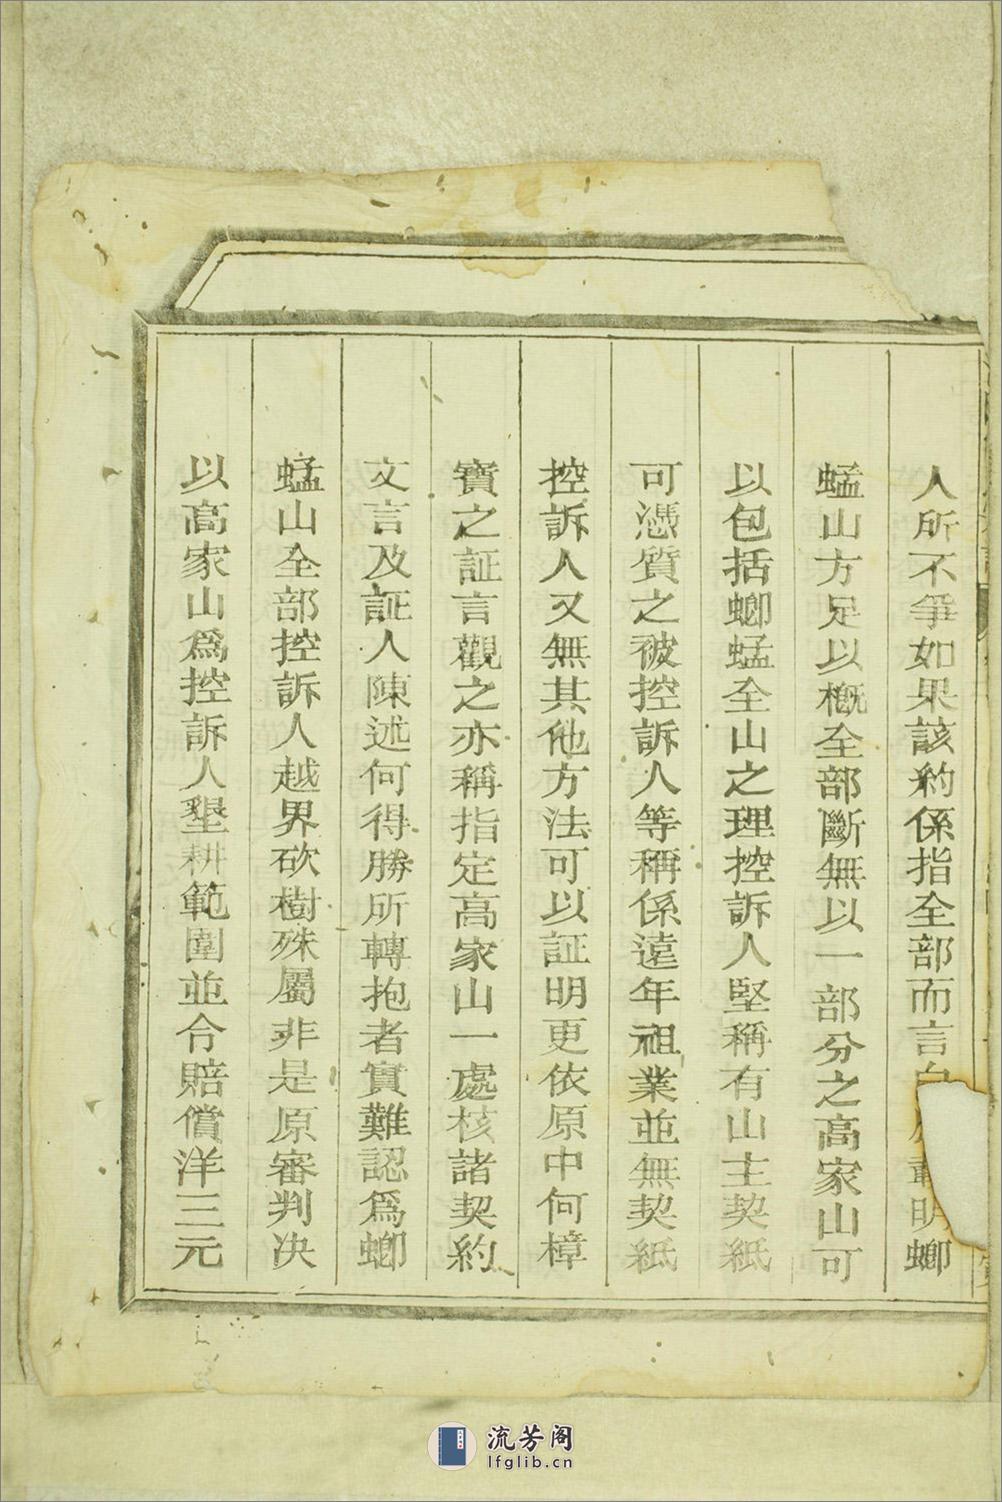 人所不爭如果該約係指全部而言自應載明螂
蜢山方足以概全部斷無以一部分之高家山可
以包括螂蜢全山之理控訴人堅稱有山主契紙
可憑質之被控訴人等稱係遠年祖業並無契紙
控訴人又無其他方法可以証明更依原中何樟
寶之証言觀之亦稱指定高家山一處核諸契約
文言及証人陳述何得勝所轉抱者實難認爲螂
蜢山全部控訴人越界砍樹殊屬非是原審判决
以高家山爲控訴人墾耕範圍並令賠償洋三元
流芳阁
lfglib.cn